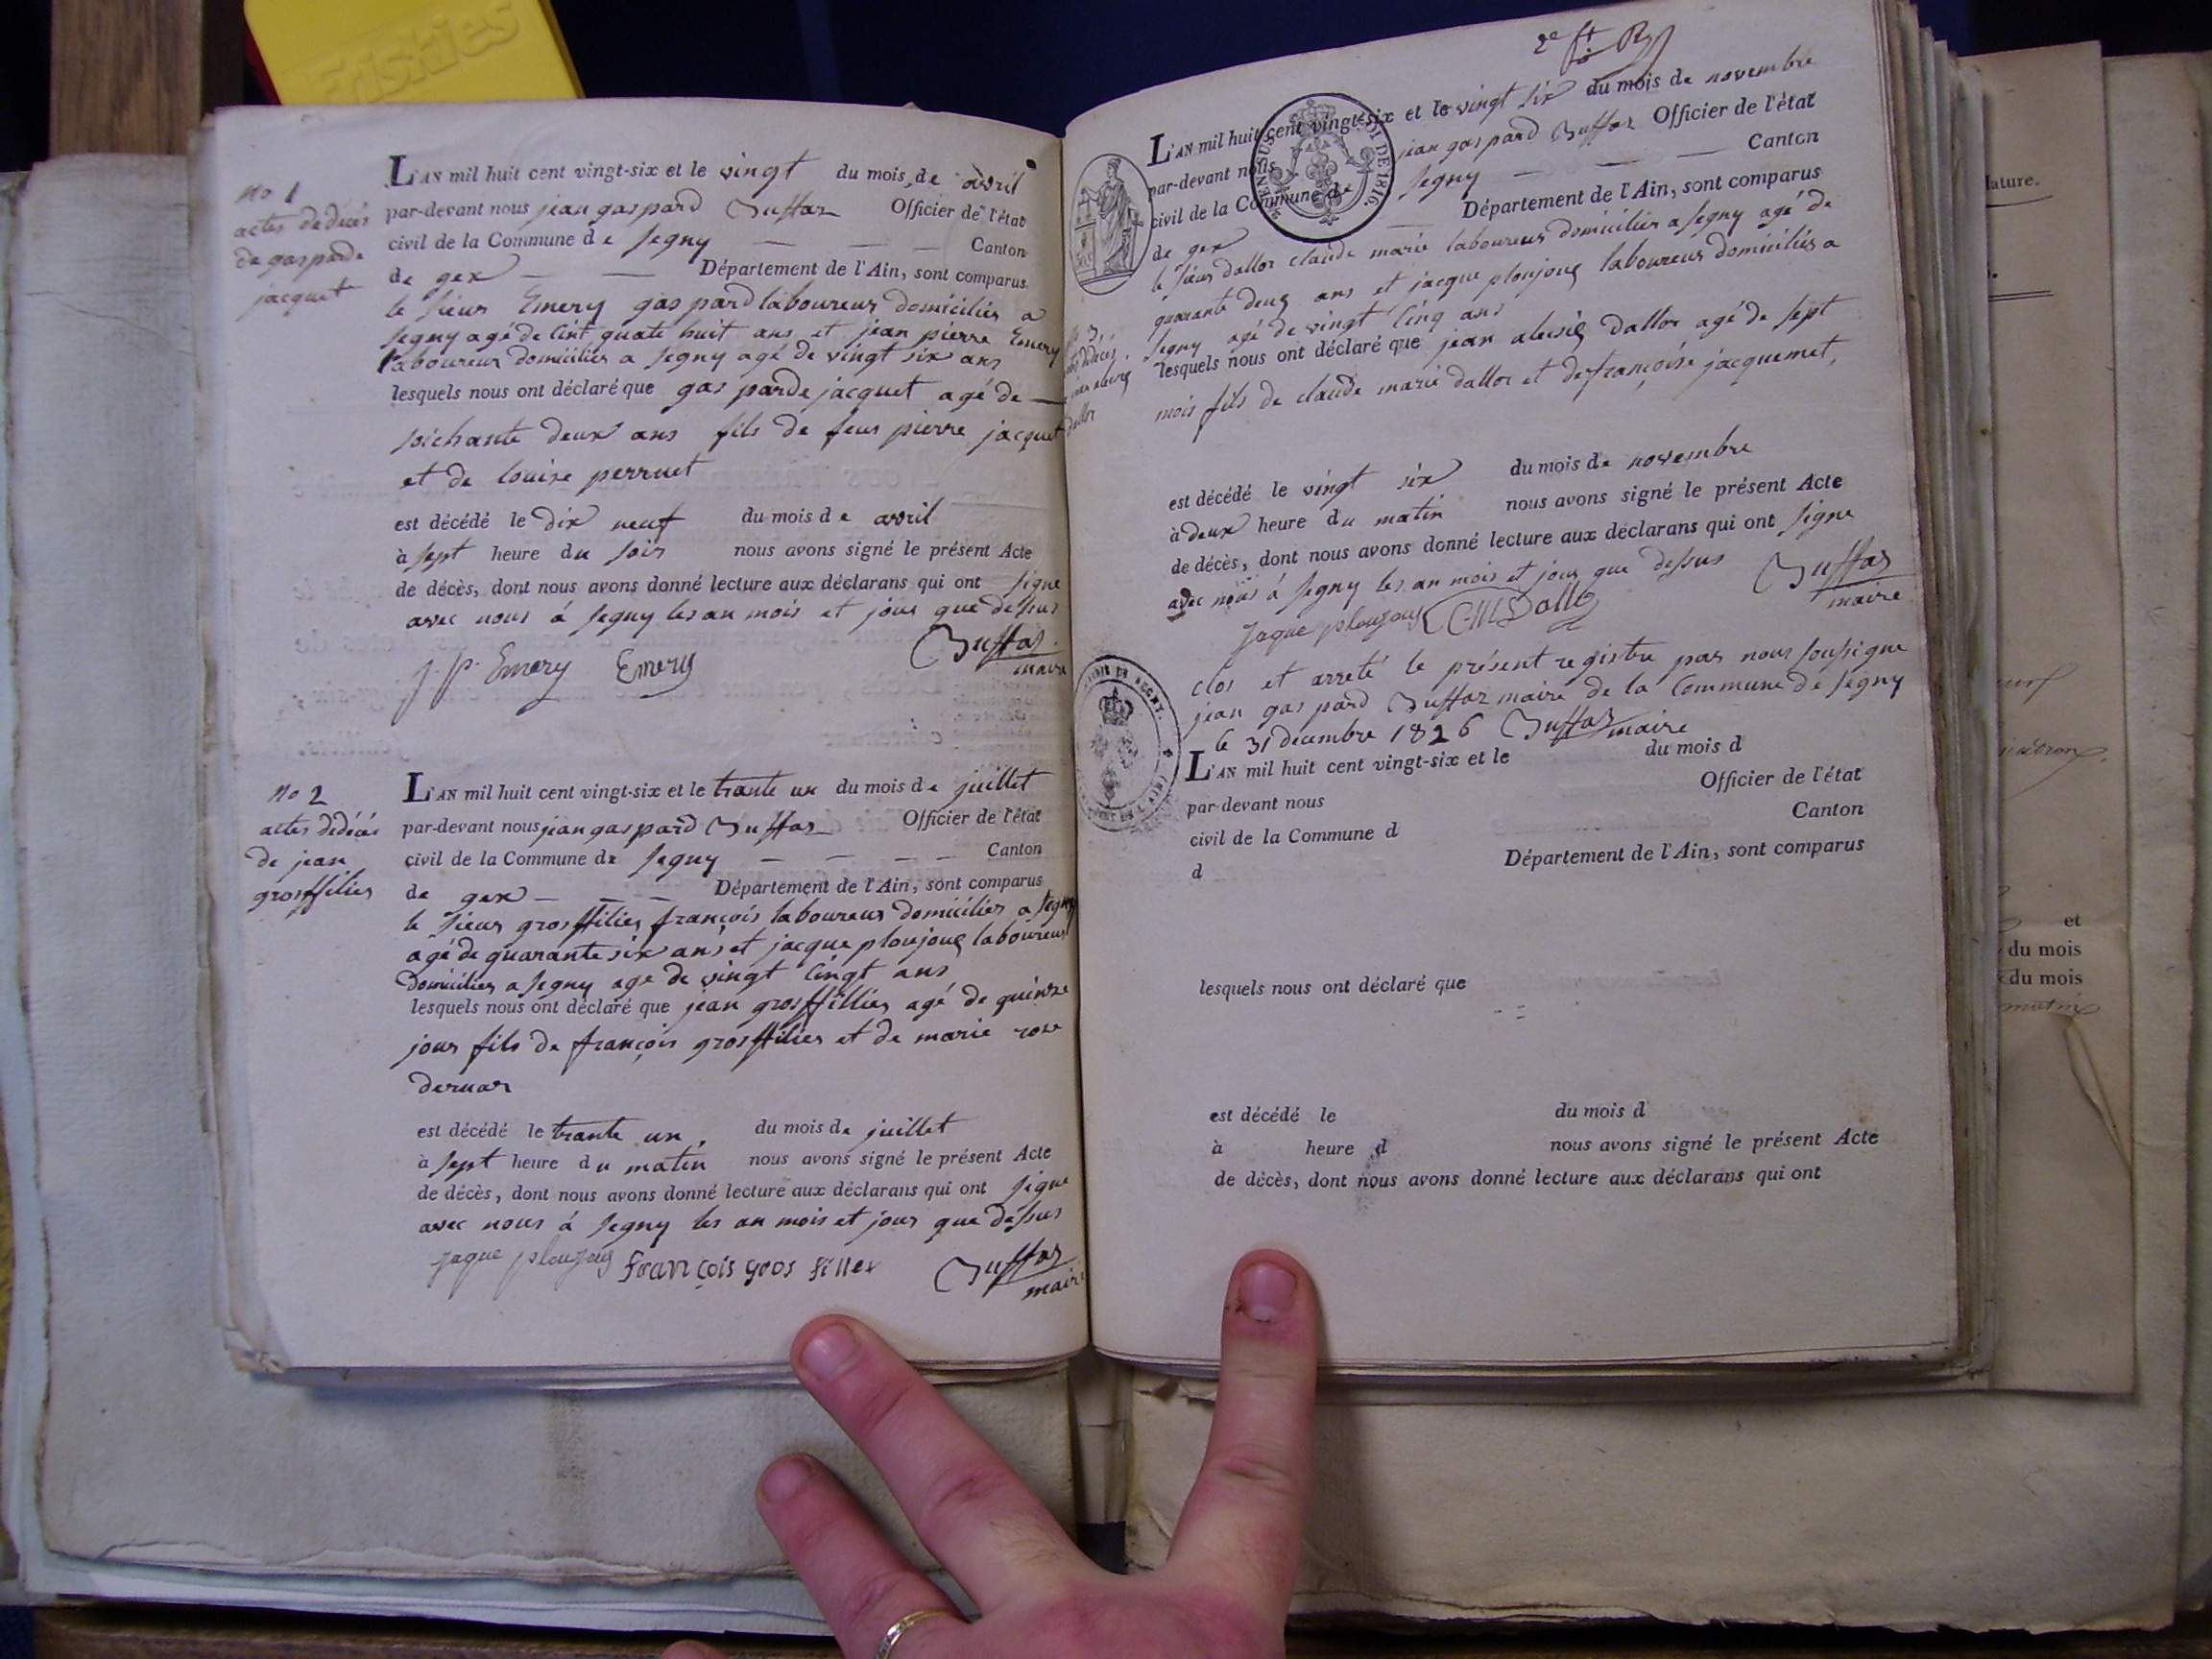 Friskies
no 1
actes de décès
de gasparde
jacquet
L'AN mil huit cent vingt-six et le vingt du mois de avril
par-devant nous jean gaspard Buffaz Officier de l'état
civil de la Commune de Segny — — — Canton
de gex — — Département de l'Ain, sont comparus
le sieur Emery gaspard laboureur domicilier a
Segny agé de cint quate huit ans et jean pierre Emery
laboureur domicilier a Segny agé de vingt six ans
lesquels nous ont déclaré que gasparde jacquet agé de —
soichante deux ans fils de feus pierre jacquet
et de louise perruet
est décédé le dix neuf du mois de avril
à sept heure du soir nous avons signé le présent Acte
de décès, dont nous avons donné lecture aux déclarans qui ont signe
avec nous á Segny les an mois et jour que dessus
J. P. Emery Emery Buffaz
maire
no 2
actes dedécés
de jean
grosfilier
L'AN mil huit cent vingt-six et le trante un du mois de juillet
par-devant nous jean gaspard Buffaz Officier de l'état
civil de la Commune de Segny — — — — Canton
de gex — — — Département de l'Ain, sont comparus
le sieur grosffilier françois laboureur domicilier a Segny
agé de quarante six ans et jacque ploujoug laboureur
domicilier a Segny age de vingt cingt ans
lesquels nous ont déclaré que jean grosffillier agé de quinze
jour fils de françois grosffilier et de marie rose
deruaz
est décédé le trante un, du mois de juillet
à sept heure du matin nous avons signé le présent Acte
de décès, dont nous avons donné lecture aux déclarans qui ont signe
avec nous á Segny les an mois et jour que dessus
jaque ploujoug françois gros filler Buffaz
maire
L'AN mil huit cent vingt-six et le vingt six du mois de novembre
par-devant nous jean gaspard Buffaz Officier de l'état
civil de la Commune de Segny — — — Canton
de gex — Département de l'Ain, sont comparus
le sieur dalloz claude marie laboureur domicilier a Segny agé de
quarante deug ans et jacque ploujoug laboureur domicilier a
Segny agé de vingt cinq ans
lesquels nous ont déclaré que jean alexis dalloz agé de sept
mois fils de claude marie dalloz et de françoise jacquemet,
est décédé le vingt six du mois de novembre
à deux heure du matin nous avons signé le présent Acte
de décès, dont nous avons donné lecture aux déclarans qui ont signe
avec nous á Segny les an mois et jour que dessus Buffaz
maire
Jaque ploujoug CM Dalloz
clos et arreté le présent registre par nous soussigne
jean gaspard Buffaz maire de la Commune de Segny
le 31 decembre 1826 Buffaz maire
L'AN mil huit cent vingt-six et le du mois d
par-devant nous Officier de l'état
civil de la Commune d Canton
d Département de l'Ain, sont comparus
lesquels nous ont déclaré que
est décédé le du mois d
à heure d nous avons signé le présent Acte
de décès, dont nous avons donné lecture aux déclarans qui ont
et
du mois
du mois
matin